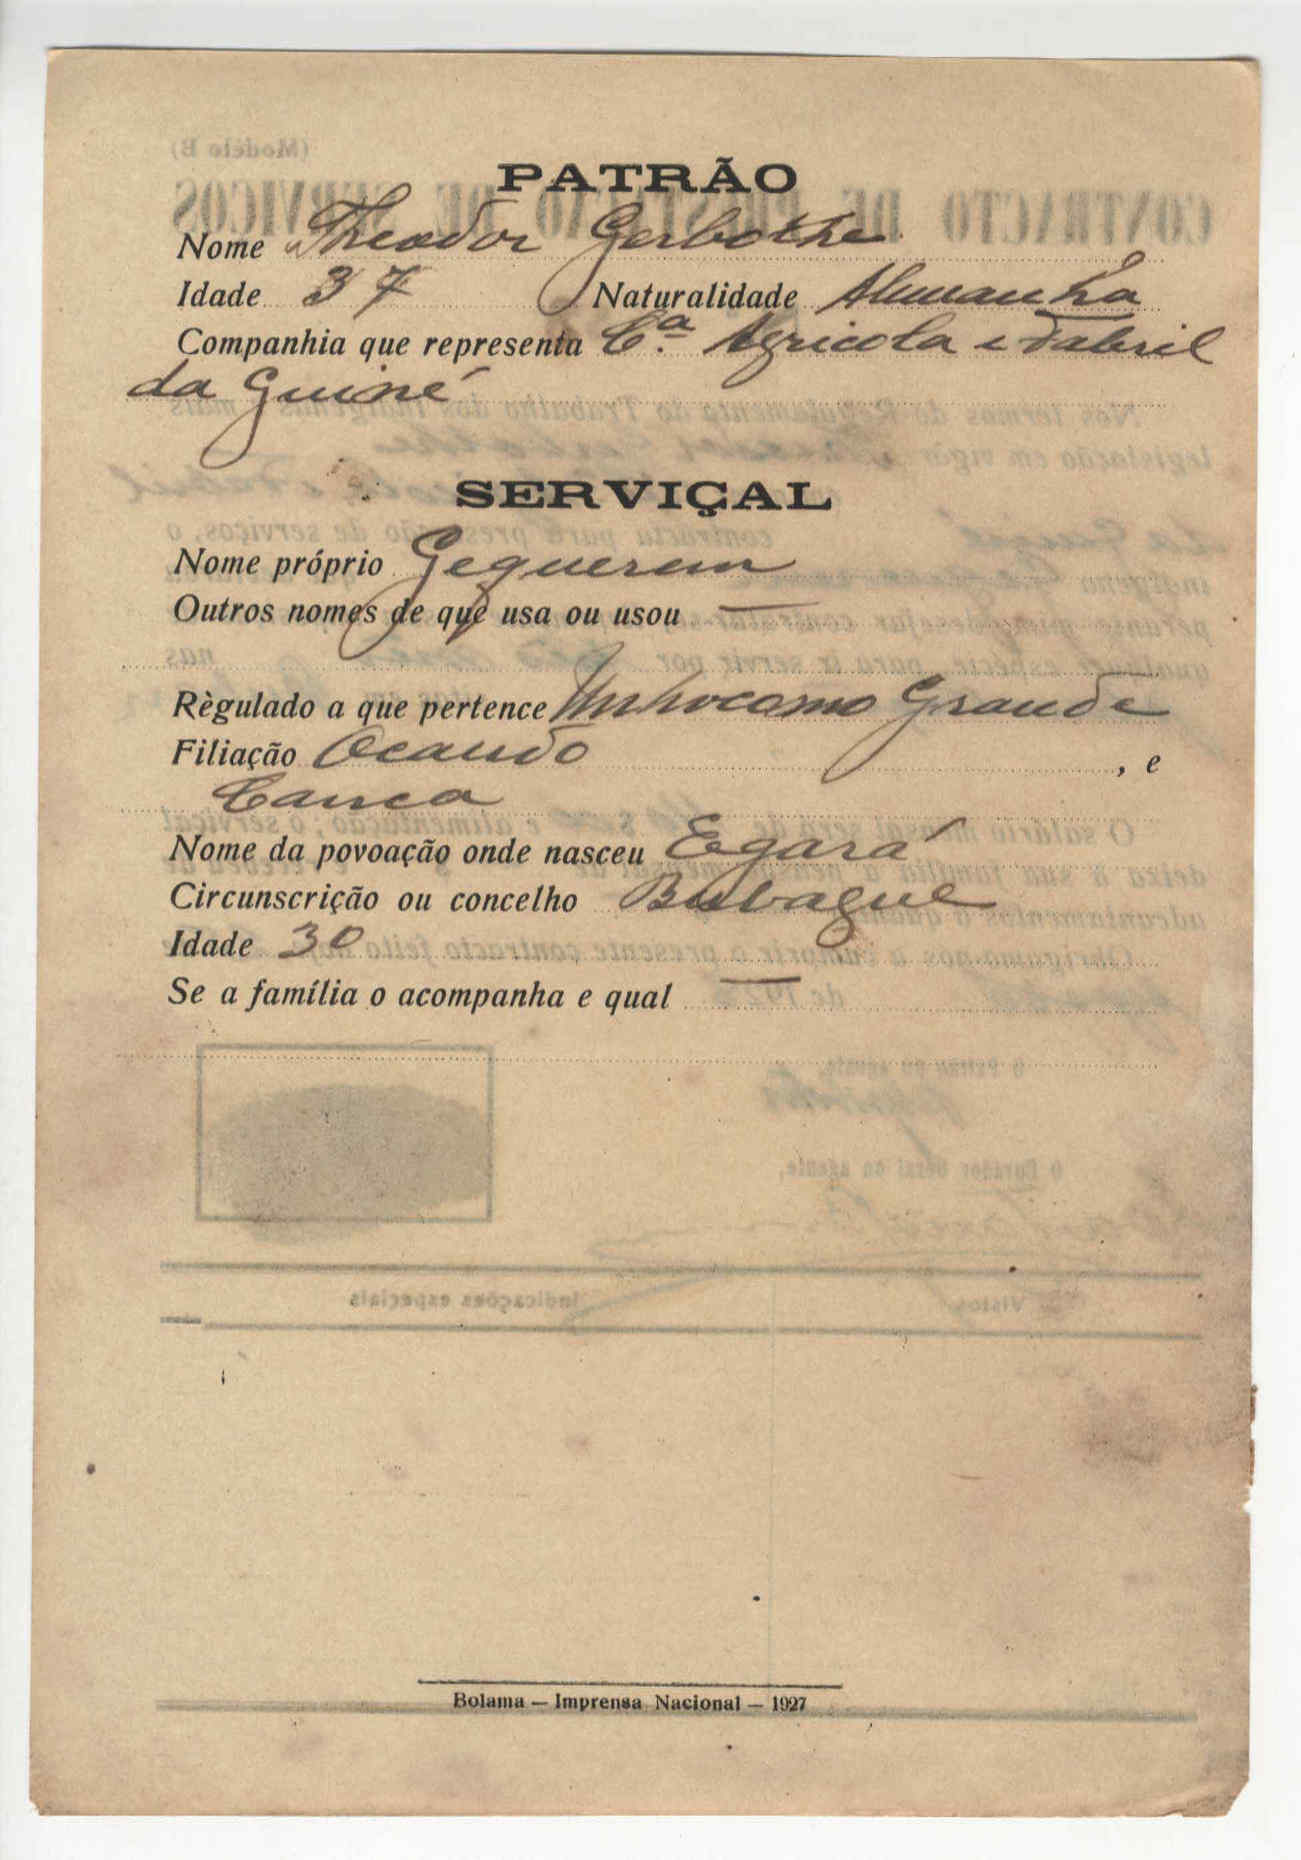 PATRÃO
Nome Theodor Gerbothe
Idade 37 Naturalidade Alemanha
Companhia que representa C.ª Agricola e Fabril
da Guiné
SERVIÇAL
Nome próprio Gequerem
Outros nomes de que usa ou usou —
Règulado a que pertence Inhocomo Grande
Filiação Ocando , e
Canca
Nome da povoação onde nasceu Egará
Circunscrição ou concelho Bubaque
Idade 30
Se a família o acompanha e qual —
Bolama — Imprensa Nacional — 1927